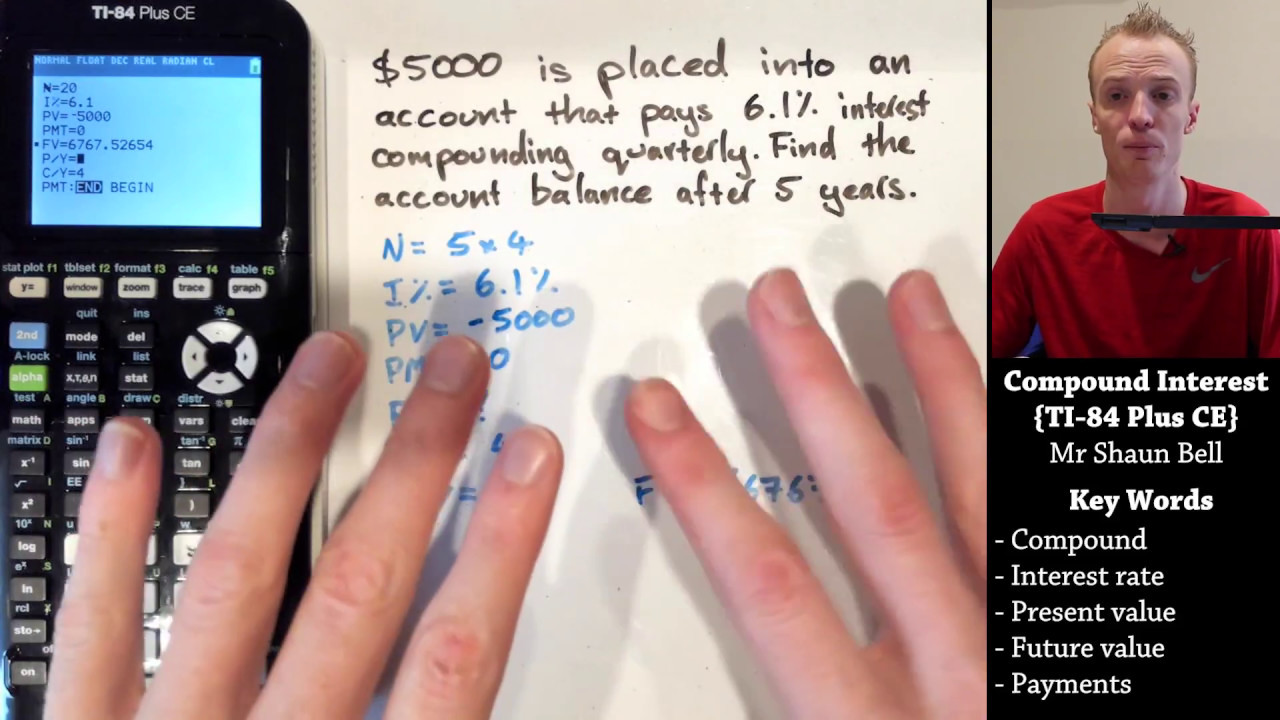 TI-84 Plus CE
NORMAL FLOAT DEC REAL RADIAN CL
N=20
I%=6.1
PV=-5000
PMT=0
▪FV=6767.52654
P/Y=
C/Y=4
PMT:END BEGIN
stat plot f1 tblset f2 format f3 calc f4 table f5
y= window zoom trace graph
quit ins
2nd mode del
A-lock link list
alpha X,T,θ,n stat
test A angle B draw C distr
math apps vars clea
matrix D sin⁻¹ tan⁻¹ G π
x⁻¹ sin tan
√ I EE } L
x² )
10ˣ N u w
log
eˣ S
ln
rcl X
sto→
on
$5000 is placed into an
account that pays 6.1% interest
compounding quarterly. Find the
account balance after 5 years.
N= 5×4
I%= 6.1%
PV= -5000
PM 0
F 676
Compound Interest
{TI-84 Plus CE}
Mr Shaun Bell
Key Words
- Compound
- Interest rate
- Present value
- Future value
- Payments